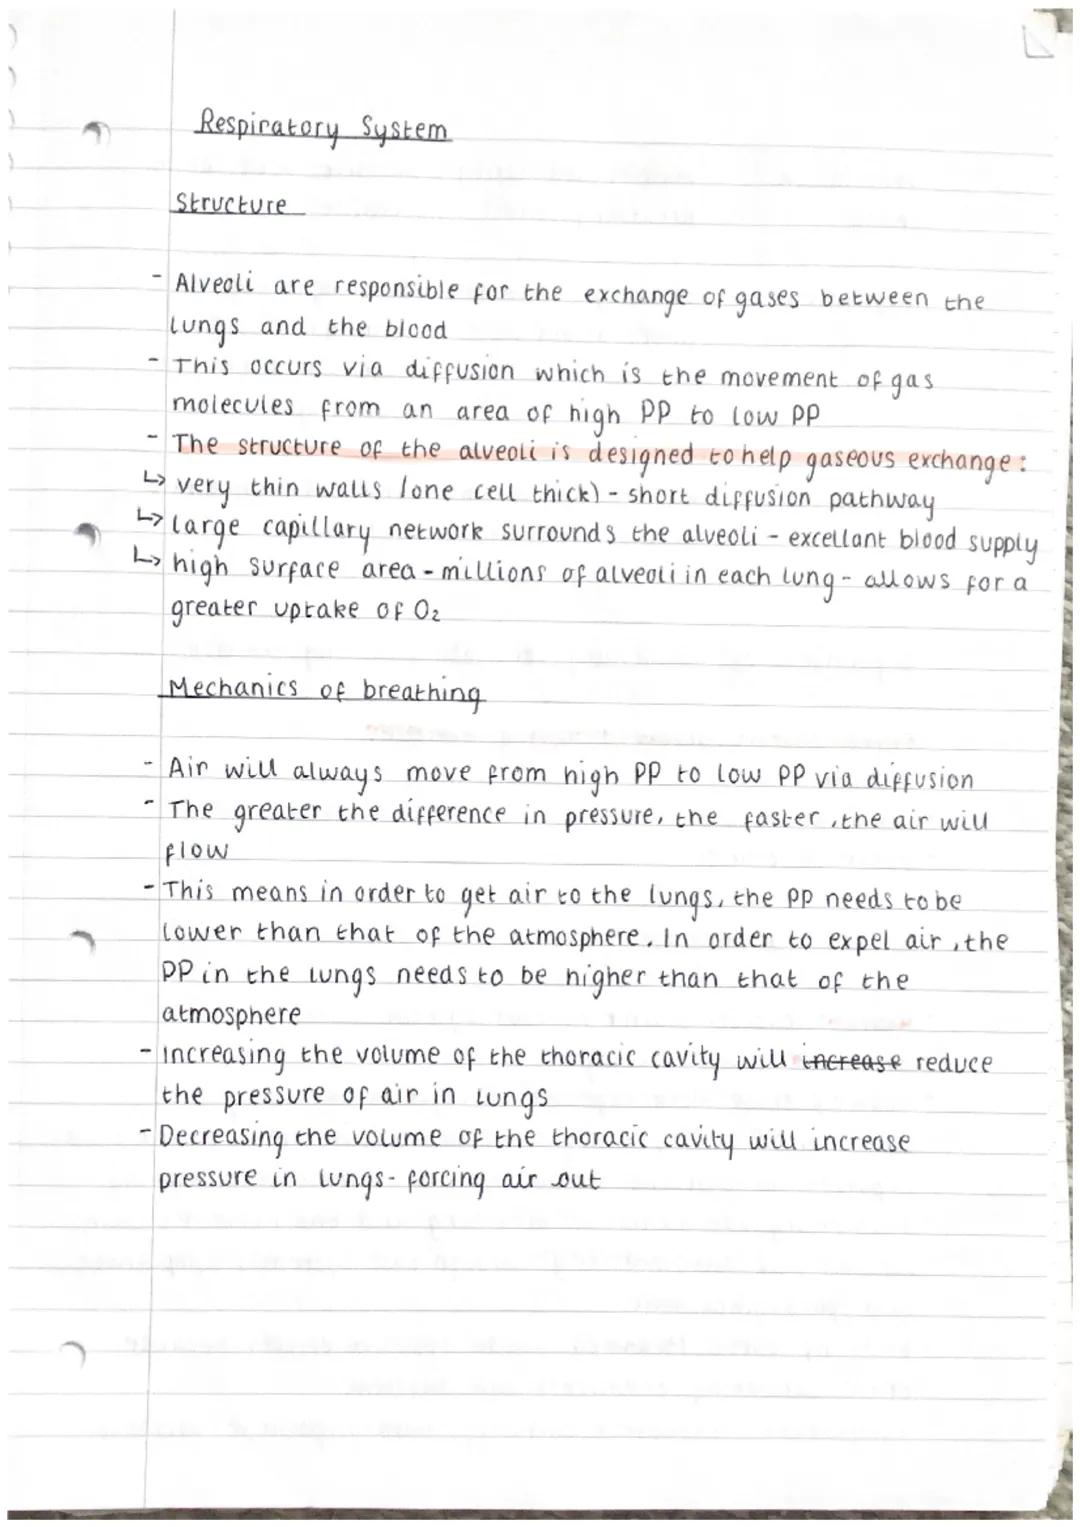 Respiratory System
Structure
- Alveoli are responsible for the exchange of gases between the
lungs and the blood
- This occurs via diffusion which is the movement of gas
molecules from an area of high PP to low PP
- The structure of the alveoli is designed to help gaseous exchange:
↳ very thin walls (one cell thick) - short diffusion pathway
↳ large capillary network surrounds the alveoli - excellant blood supply
↳ high surface area - millions of alveoli in each lung - allows for a
greater uptake of O₂
Mechanics of breathing
- Air will always move from high PP to low PP via diffusion
- The greater the difference in pressure, the faster, the air will
flow
- This means in order to get air to the lungs, the PP needs to be
lower than that of the atmosphere. In order to expel air, the
PP in the lungs needs to be higher than that of the
atmosphere
- Increasing the volume of the thoracic cavity will increase reduce
the pressure of air in lungs
- Decreasing the volume of the thoracic cavity will increase
pressure in lungs - forcing air out